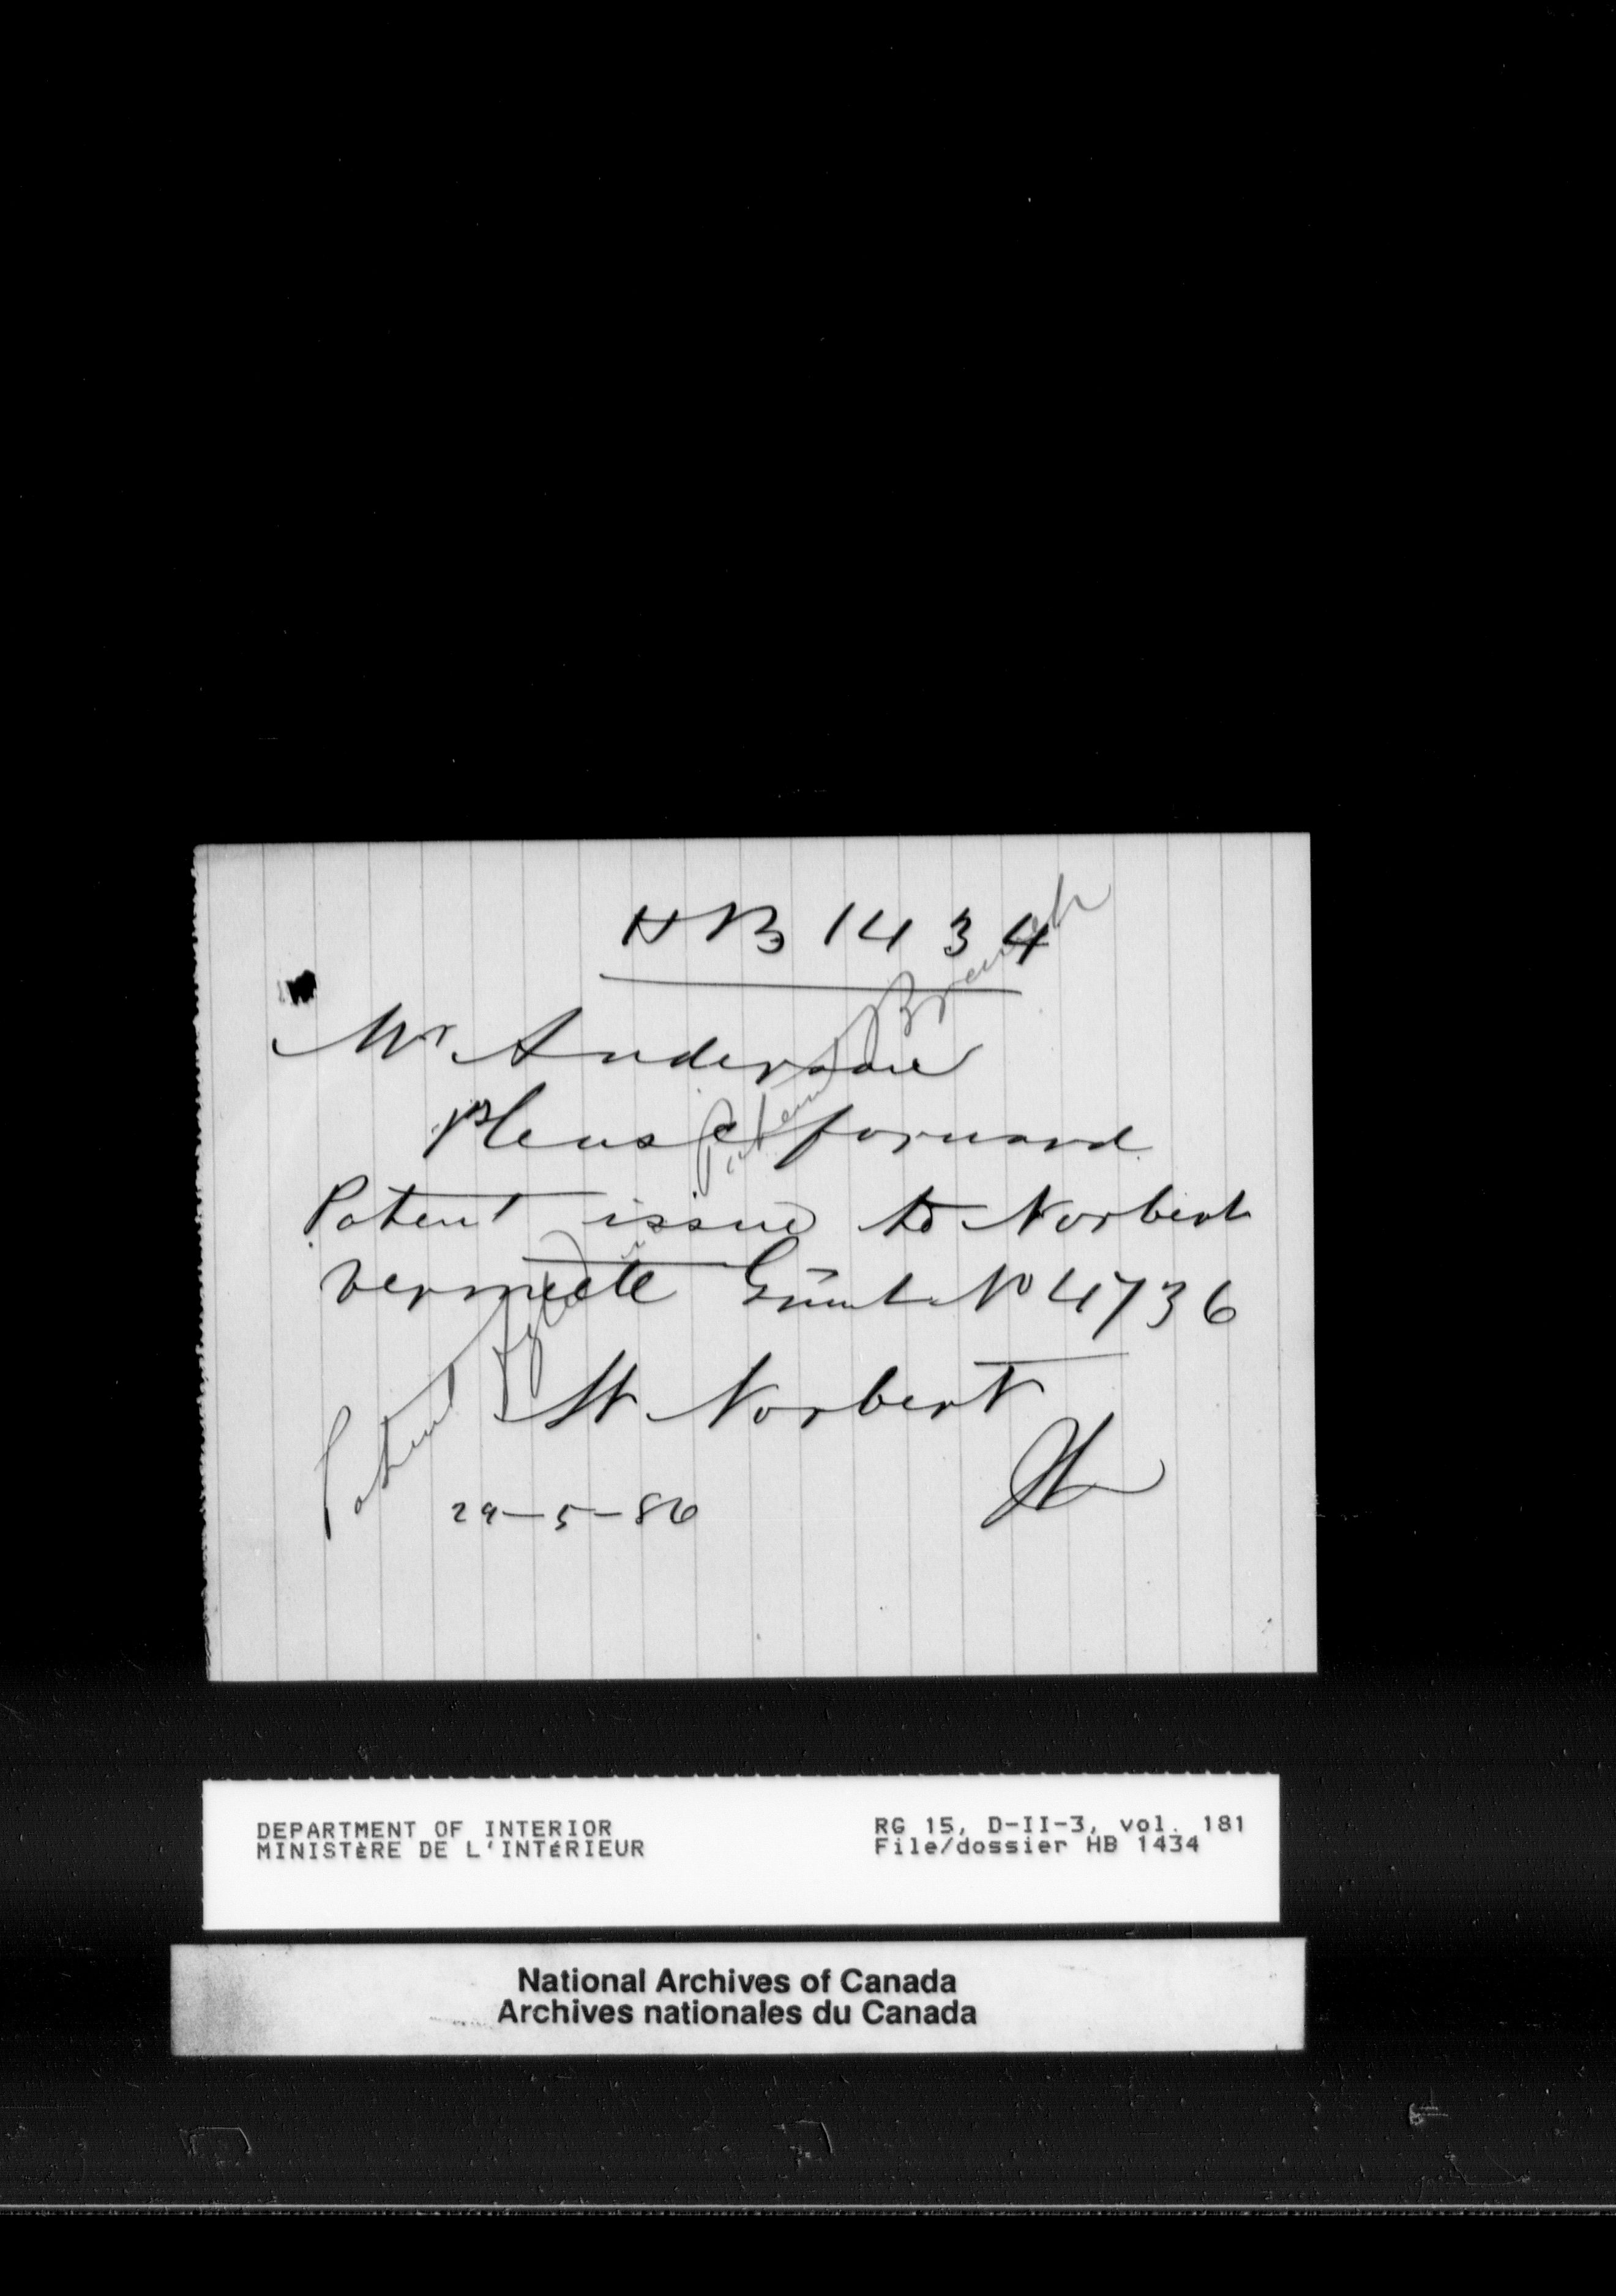 HB 1434
Mr Anderson
Please forward
Patent issue to Norbert
Vermette Grant No 4736
St Norbert
29-5-86
Patent Branch
Patent
DEPARTMENT OF INTERIOR
MINISTÈRE DE L'INTÉRIEUR
RG 15, D-II-3, vol. 181
File/dossier HB 1434
National Archives of Canada
Archives nationales du Canada